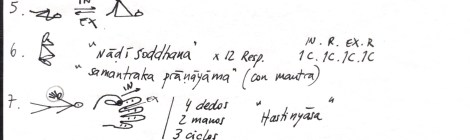 5. IN EX
6. "Nāḍī Śoddhana" x 12 Resp. IN. R. EX. R
1C. 1C. 1C. 1C
"samantraka prāṇāyāma" (con mantra)
7. IN EX 4 dedos "Hastinyāsa"
2 manos
3 ciclos